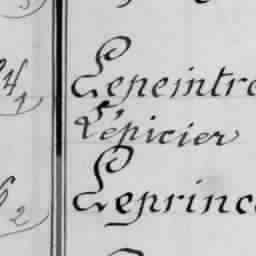 Lepeintre
L'épicier
Leprince